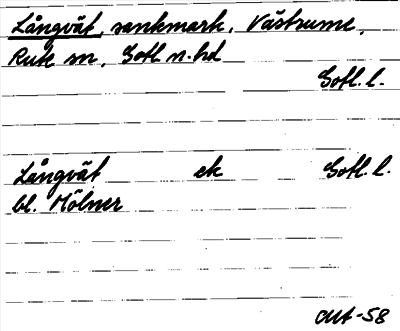 Långvät, sankmark, Västrume,
Rute sn, Gotl n. hd
Gotl. l.
Långvät ek Gotl. l.
bl. Mölner
OUA-58